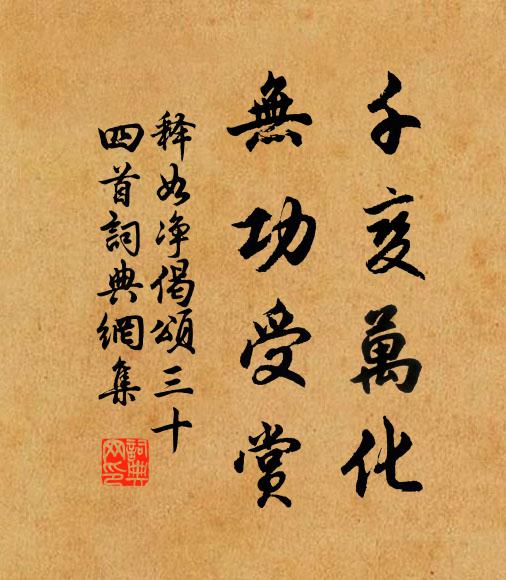 千变萬化
無功受賞
释如净偈頌三十
四首詞典網集
詞典网印